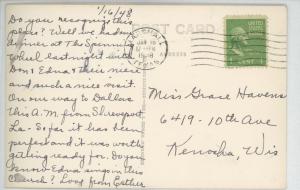 1/16/48
Do you recognize this
place? Well we had
dinner at The Spinning
Wheel last night with
Don & Edna & their niece
and such a nice visit.
On our way to Dallas
this A.M. from Shreveport,
La. So far it has been
perfect and it was worth
getting ready for. Do you
know Edna sings in this
church? Love from Esther
POST CARD
ADDRESS
MARSHALL
JAN 16
1948
TEXAS
UNITED STATES
POSTAGE
1 CENT 1
Miss Grace Havens
6419-10th Ave
Kenosha, Wis